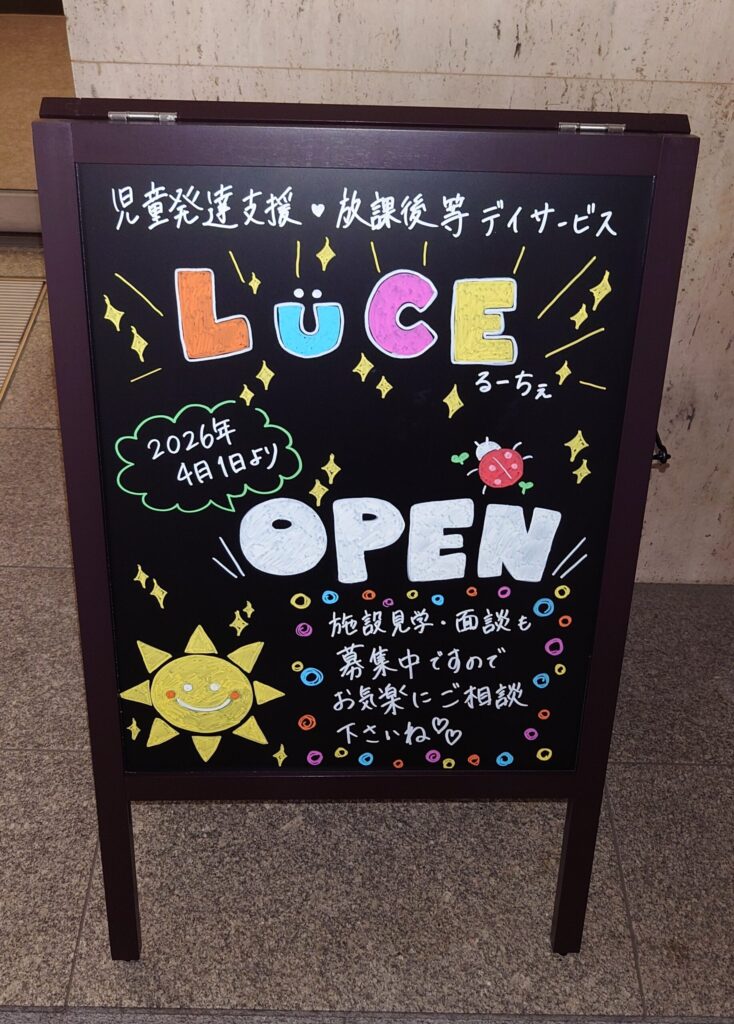 児童発達支援♥放課後等デイサービス
LÜCE
るーちぇ
2026年
4月1日より
OPEN
施設見学・面談も
募集中ですので
お気楽にご相談
下さいね♡♡